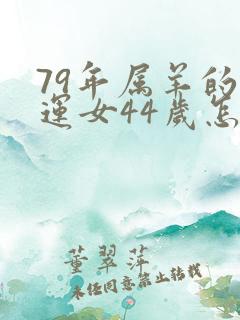 79年属羊的
運女44歲怎
董翠萍
未经同意禁止转载